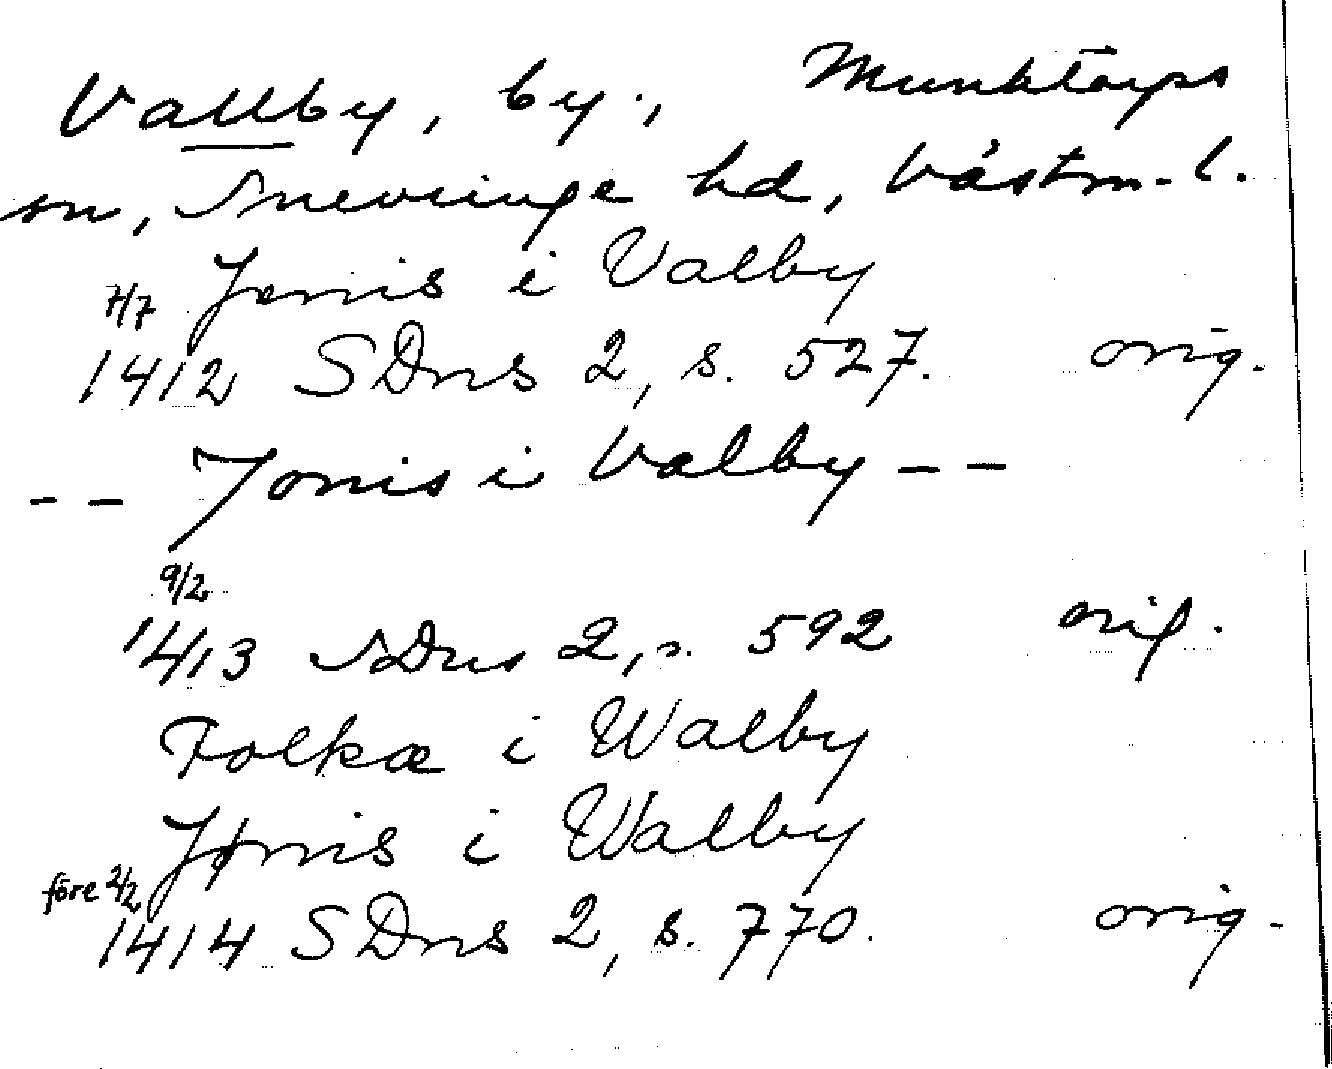 Vallby, by., Munktorps
sn, Snevringe hd, Västm. l.
Jenis i Valby
7/7
1412 SDns 2, s. 527. orig.
-- Jonis i Valby --
9/2
1413 SDns 2, s. 592 orig.
Folka i Walby
Jønis i Walby
före 2/2
1414 SDns 2, s. 770. orig.